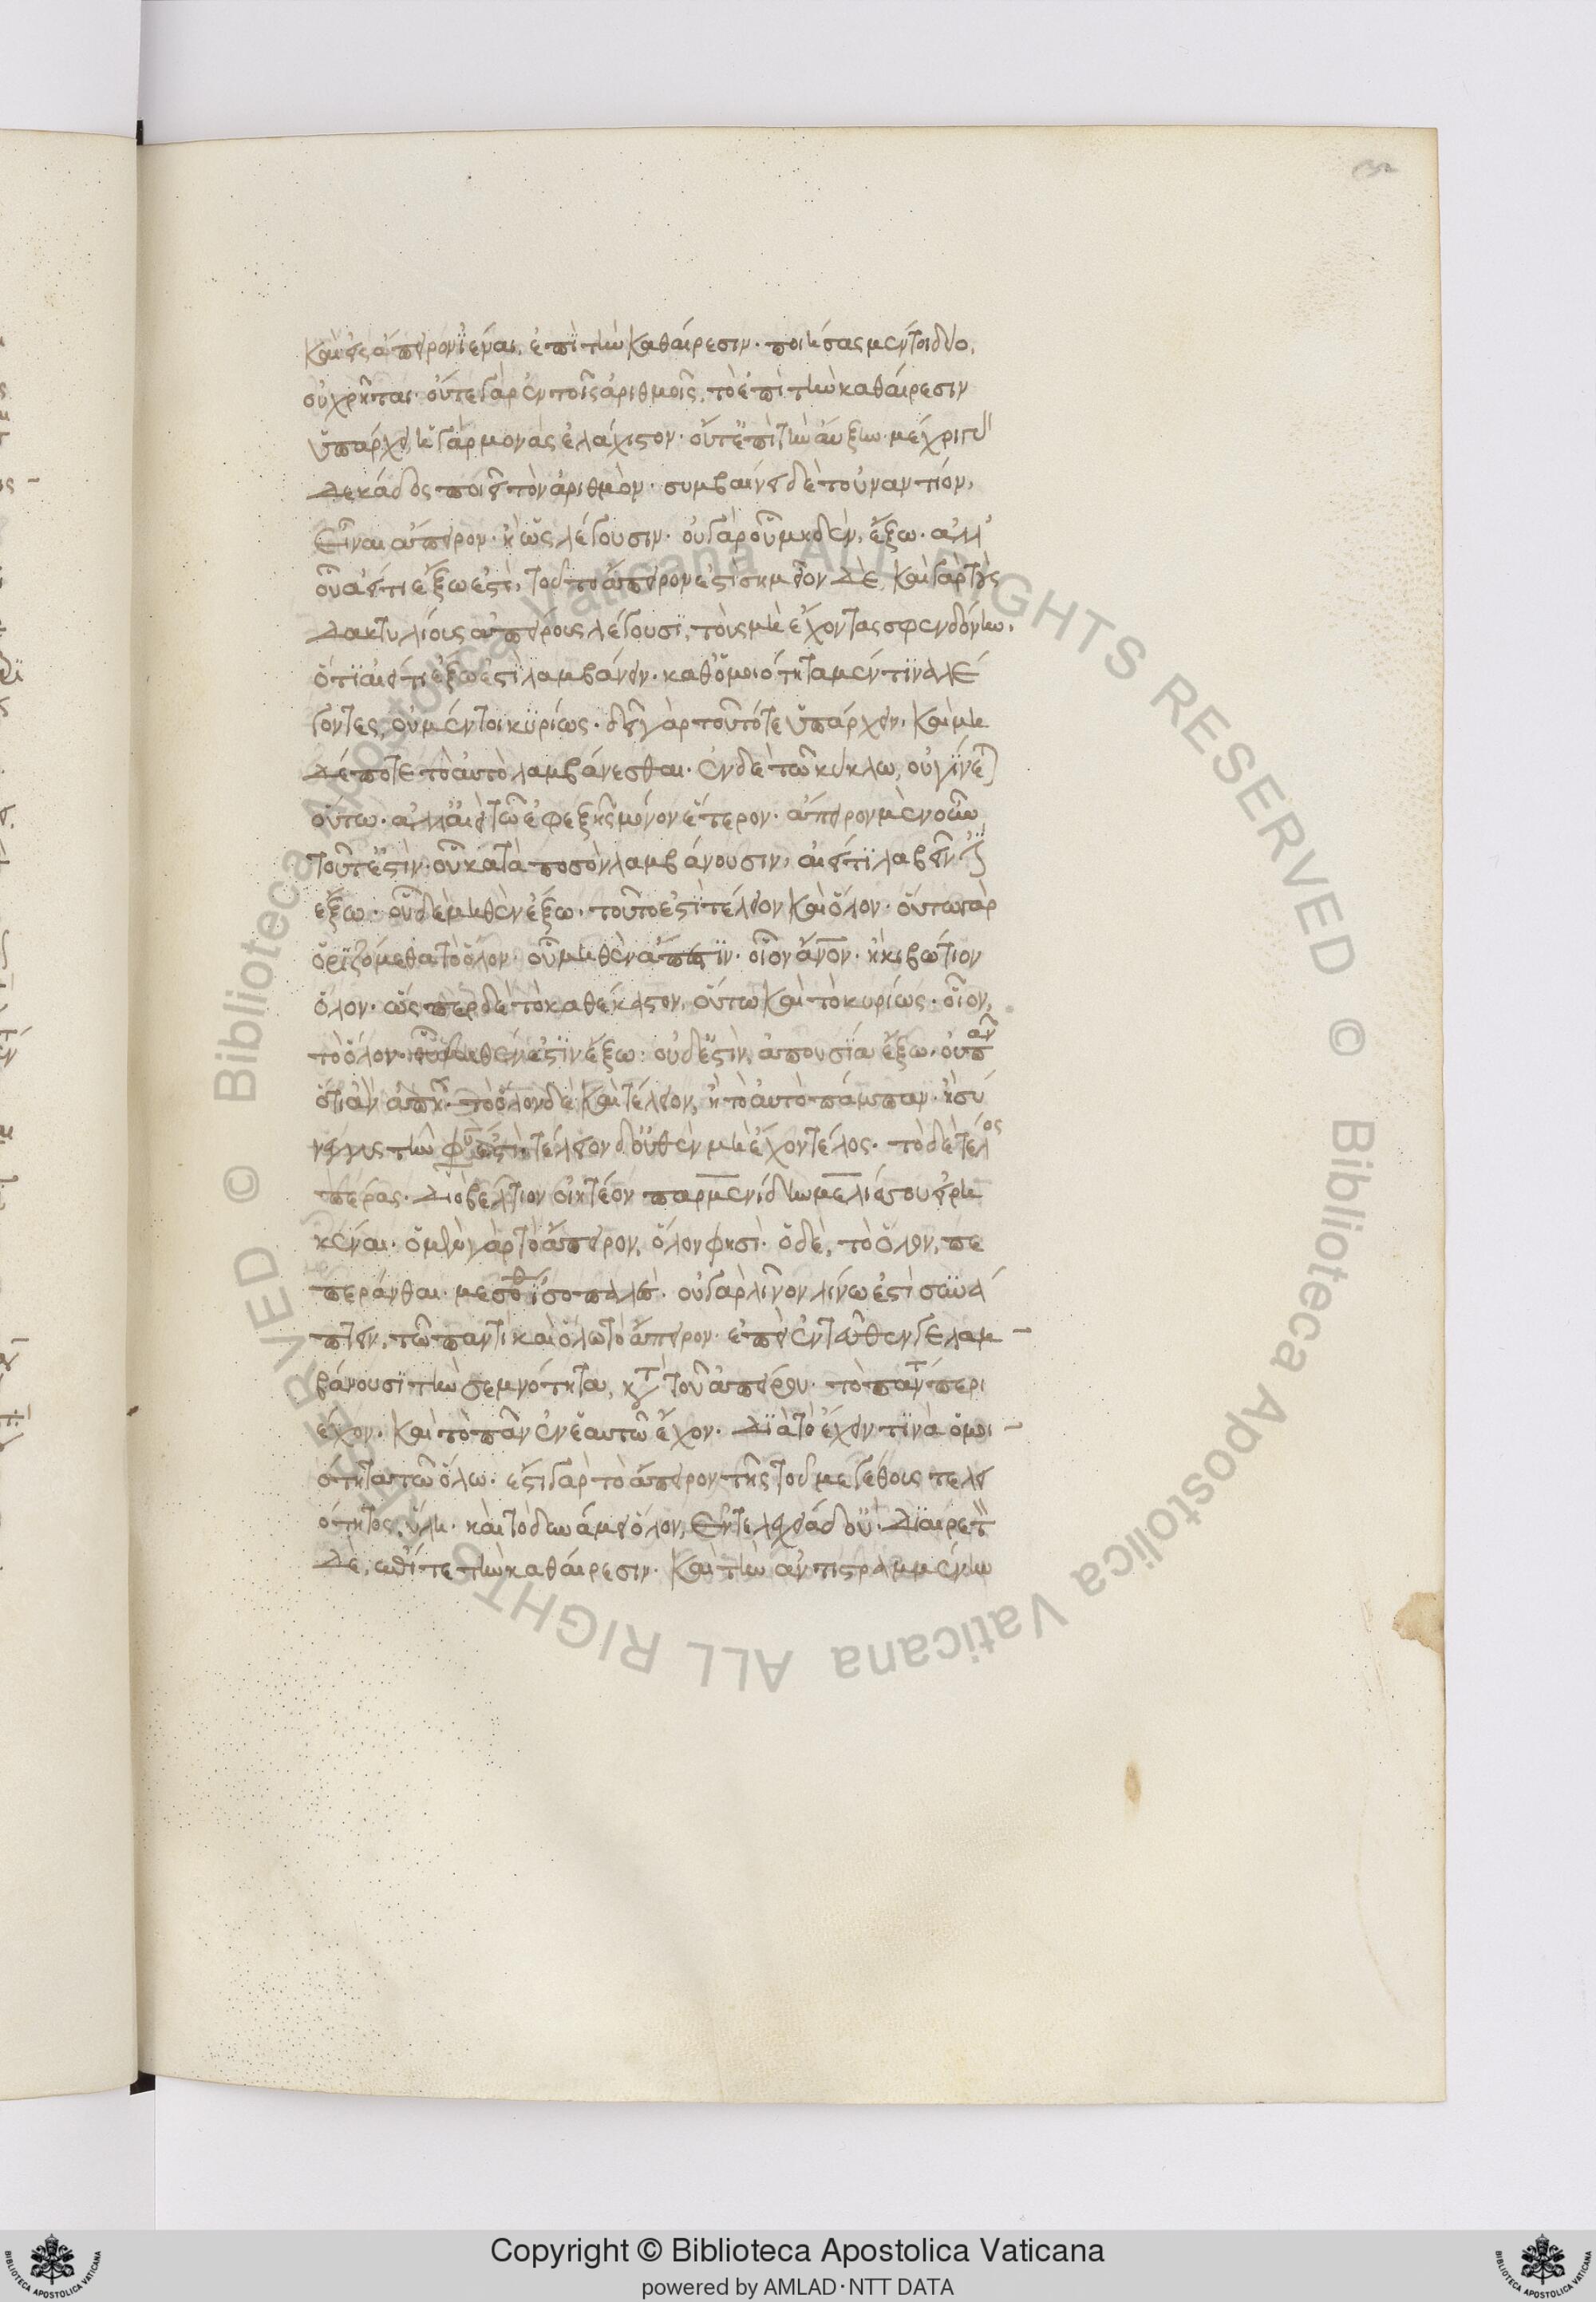 καὶ εἰς ἄπειρον ϊέναι, ἐπὶ τὴν καθαίρεσιν· ποιήσας μέντοι δύο,
οὐ χρῆται· οὔτε γὰρ ἐν τοῖς ἀριθμοῖς, τὸ ἐπὶ τὴν καθαίρεσιν
ὑπάρχει, ἡ γὰρ μονὰς ἐλάχιστον· οὔτ' ἐπὶ τὴν αὔξην· μέχρι γὰρ
δεκάδος ποιεῖ τὸν ἀριθμόν· συμβαίνει δὲ τοὐναντίον,
εἶναι ἄπειρον· ἢ ὡς λέγουσιν· οὐ γὰρ οὗ μηδὲν, ἔξω· ἀλλ'
οὗ ἀεί τι ἔξω ἐστὶ, τοῦτο ἄπειρον ἐστὶ σημεῖον δὲ, καὶ γὰρ τοὺς
δακτυλίους ἀπείρους λέγουσι, τοὺς μὴ ἔχοντας σφενδόνην,
ὅτι αἰεί τι ἔξω ἐστὶ λαμβάνειν· καθ' ὁμοιότητα μέν τινα λέ
γοντες, οὐ μέντοι κυρίως· δεῖ γὰρ τοῦτό τε ὑπάρχειν, καὶ μη
δέποτε τὸ αὐτὸ λαμβάνεσθαι· ἐν δὲ τῶ κύκλω, οὐ γίνεται
οὕτω· ἀλλ' αἰεὶ τῶ ἐφεξῆς μόνον ἕτερον· ἄπειρον μὲν οὖν
τοῦτ' ἔστιν· οὗ κατὰ ποσὸν λαμβάνουσιν, αἰεί τι λαβεῖν ἔστιν
ἔξω· οὗ δὲ μηθὲν ἔξω· τοῦτο ἐστὶ τέλειον καὶ ὅλον· οὕτω γὰρ
ὁριζόμεθα τὸ ὅλον· οὗ μηθὲν ἄπεστιν· οἷον ἄνον· ἢ κιβώτιον
ὅλον· ὥσπερ δὲ τὸ καθέκαστον, οὕτω καὶ τὸ κυρίως· οἷον,
τὸ ὅλον· οὗ μηθέν ἐστιν ἔξω· οὗ δ' ἔστιν, ἀπουσία ἔξω· οὐ πᾶν
ὅτι ἂν ἀπῆ· τὸ ὅλον δὲ καὶ τέλειον, ἢ τὸ αὐτὸ πάμπαν· ἢ σύ
νεγγυς τὴν φύ ἐστὶ· τέλειον δ' οὐθὲν μὴ ἔχον τέλος· τὸ δὲ τέλος
πέρας· διὸ βέλτιον οἰητέον παρμενίδην μελίσσου εἰρη
κέναι· ὁ μὲν γὰρ τὸ ἄπειρον, ὅλον φησὶ· ὁ δὲ, τὸ ὅλον, πε
περάνθαι· μεσόθ ϊσοπαλὲ· οὐ γὰρ λίνον λίνω ἐστὶ συνά
πτειν, τῶ παντὶ καὶ ὅλω τὸ ἄπειρον· ἐπεὶ ἐντεῦθεν γε λαμ
βάνουσι τὴν σεμνότητα, κατὰ τοῦ ἀπείρου· τὸ πάντ περι
έχον· καὶ τὸ πᾶν ἐν ἑαυτῶ ἔχον· διὰ τὸ ἔχειν τινὰ ὁμοι
ότητα τῶ ὅλω· ἔστι γὰρ τὸ ἄπειρον τῆς τοῦ μεγέθους τελει
ότητος ὕλη· καὶ τὸ δυνάμει ὅλον, ἐντελεχεία δ' οὔ· διαιρετ
δὲ, ἐπί τε τὴν καθαίρεσιν· καὶ τὴν ἀντιστραμμένην